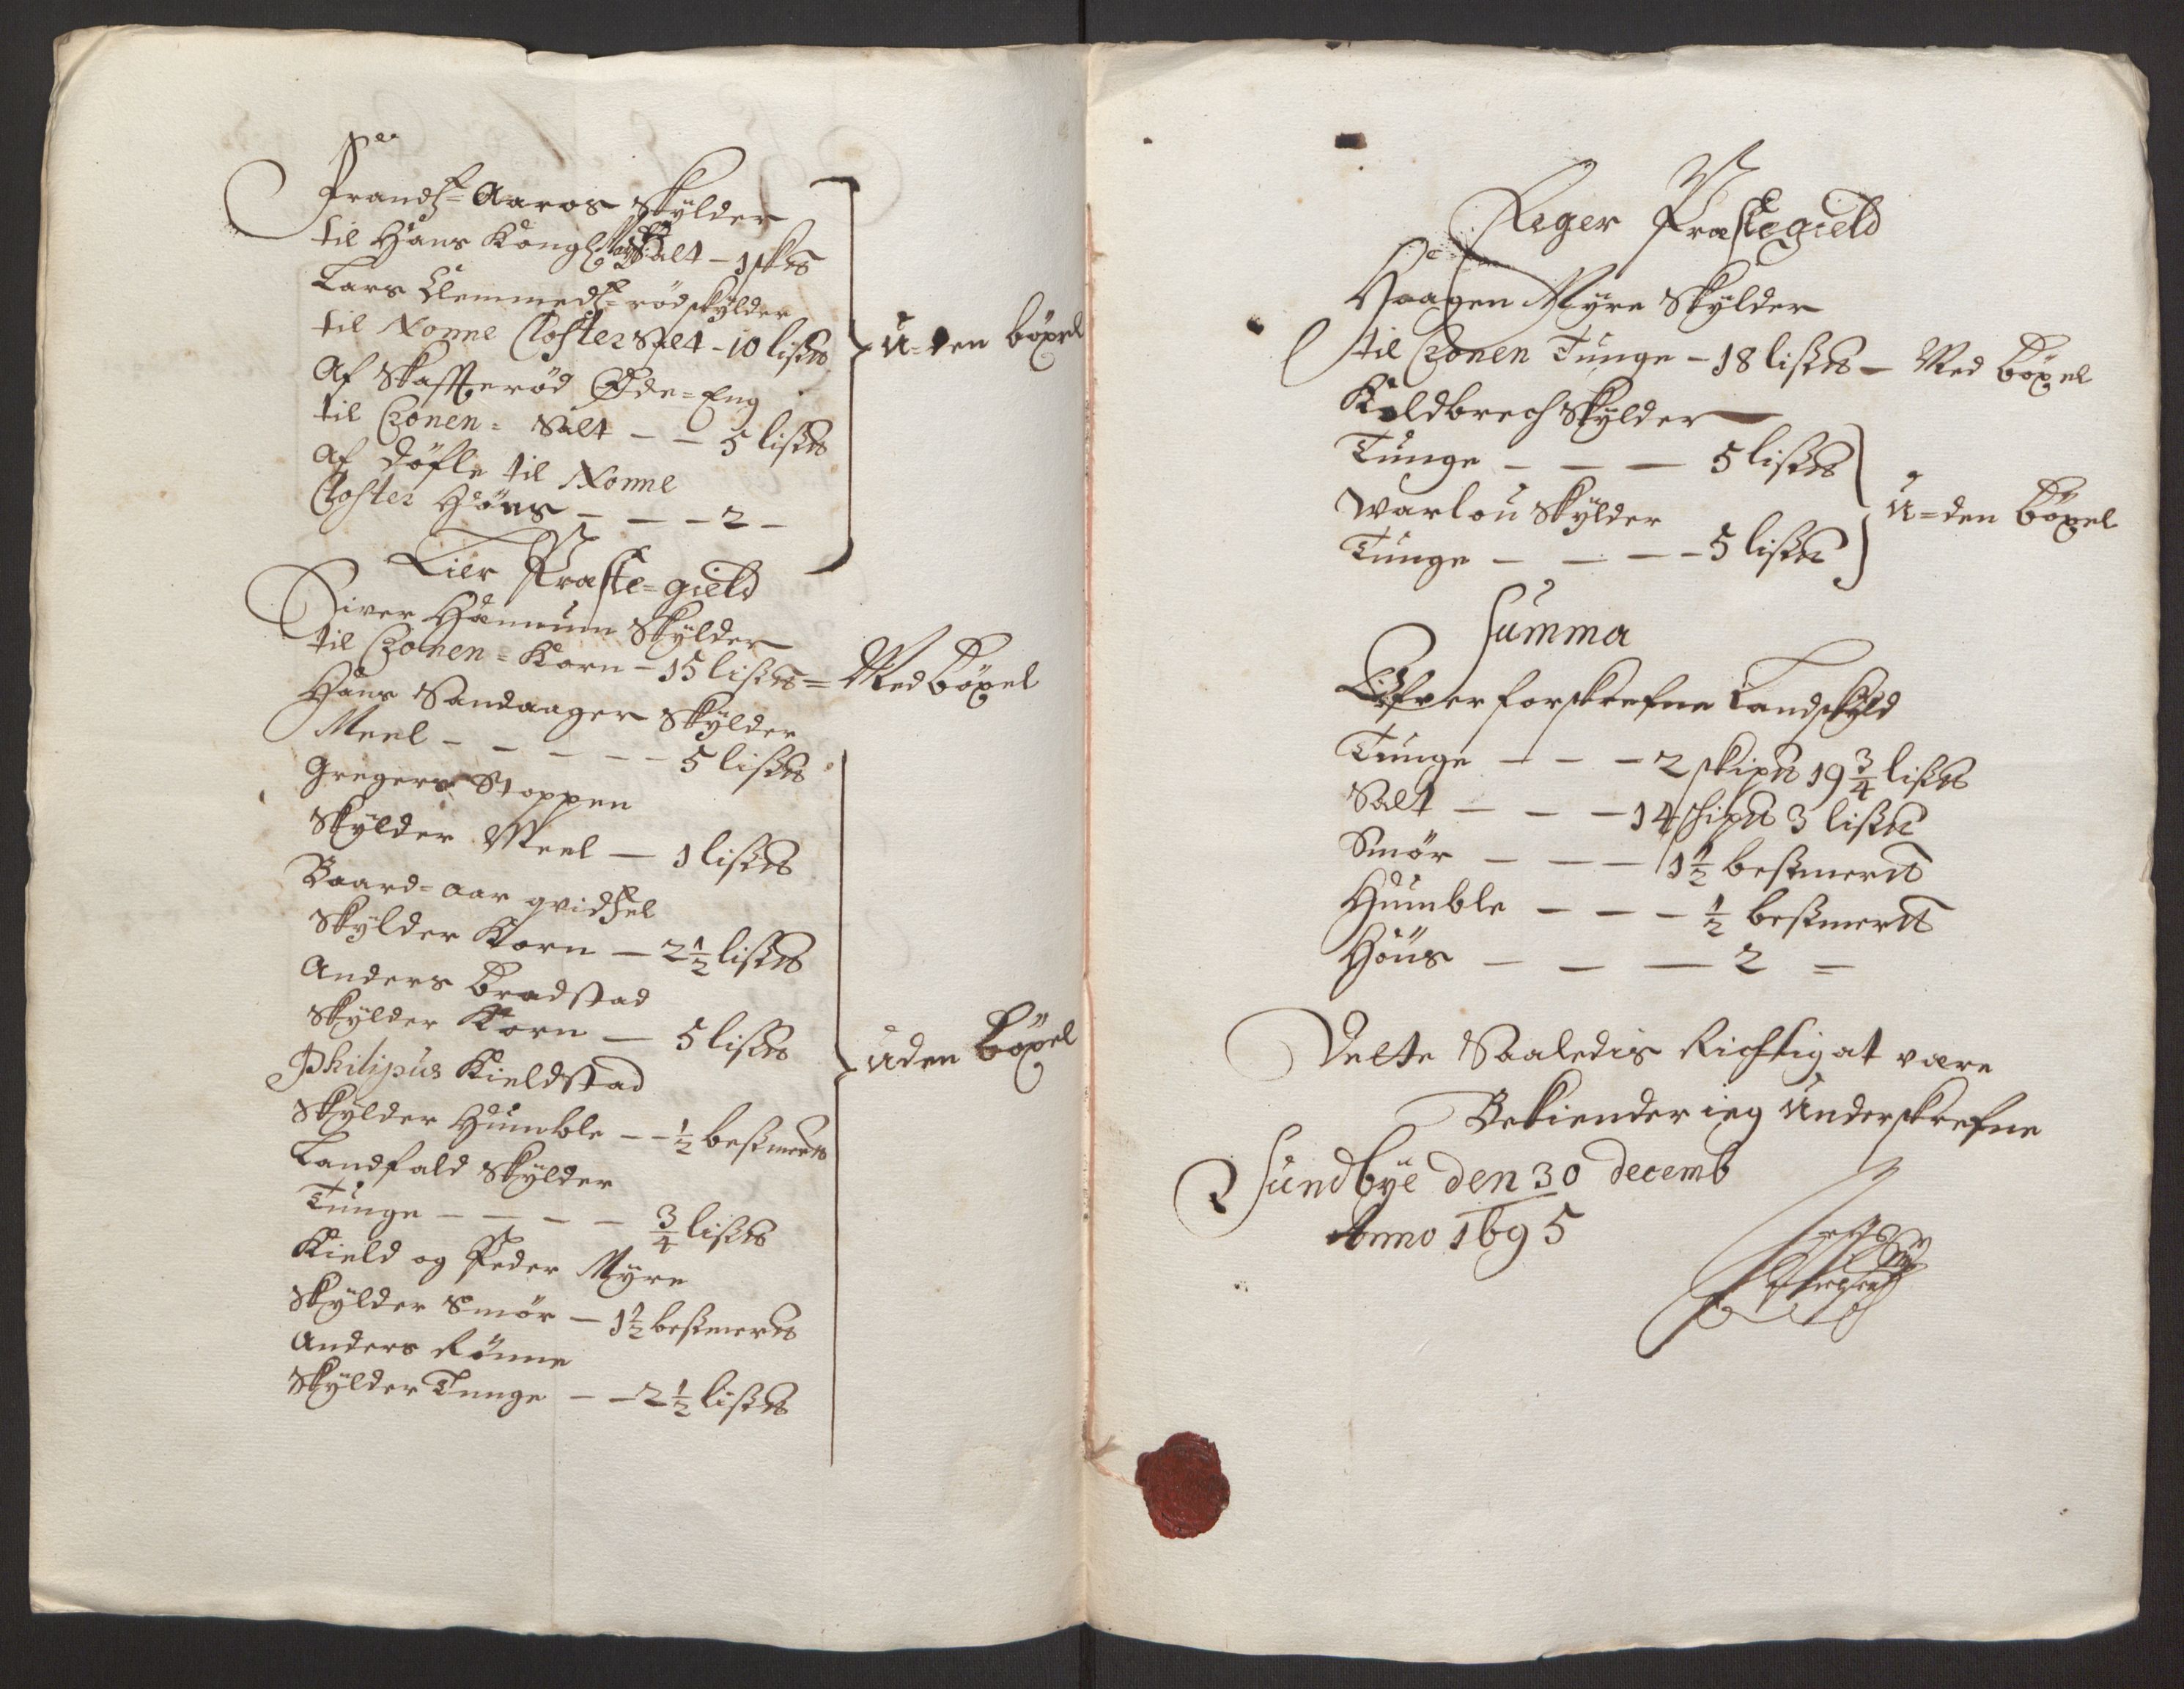 Frandtz Aaroe skylder
til Hans Kongl: Maytt Salt – 1 skp
Lars Clemmedtzrød skylder
til Nonne Closter Salt – 10 lispd
Af Skafferød Øde=Eng
til Cronen = Salt – – 5 lispd
af døfle til Nonne
Closter Høns – – – 2 –
U=den böxel
Lier Præste=gield
Siver Hannum Skylder
til Cronen = Korn – 15 lispd = Med böxel
Hans Sandaager Skylder
Meel – – – – – 5 lispd
Gregers Stoppen
Skylder Meel – 1 lispd
Baard=aar qvidtzel
Skylder Korn – 2 1/2 lispd
Anders Bradstad
Skylder Korn – 5 lispd
Philipus Kieldstad
Skylder Humble – – 1/2 bessmerd
Landfald Skylder
Tunge – – – – 3/4 lispd
Kield og Peder Myre
Skylder Smør – 1 1/2 bessmerd
Anders Rönne
Skylder Tunge – – 2 1/2 lispd
Uden böxel
Eger Præstegield
Haagen Myre Skylder
til Cronen Tunge – 18 lispd – Med böxel
Koldbrech Skylder
Tunge – – – 5 lispd
Warlou Skylder
Tunge – – – – 5 lispd
U=den böxel
Summa
Ofver forskrefne Landskyld
Tunge – – – 2 skipd 19 3/4 lispd
Salt – – – 14 skipd 3 lispd
Smør – – – 1 1/2 bessmerd
Humble – – – 1/2 bessmerd
Höns – – – 2 –
Dette Saaledis Richtig at være
Bekiender ieg Underskrefne
Sundbye den 30 decemb
Anno 1695